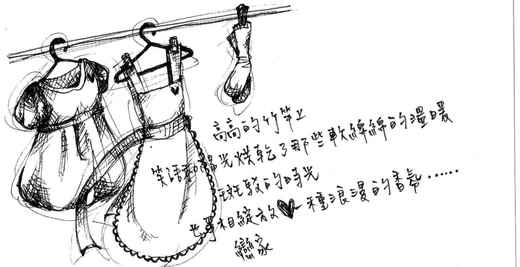 高高的竹竿上
笑語和陽光烘乾了那些軟綿綿的溫暖
斑駁的時光
相綻放一種浪漫的香氣……
戀家